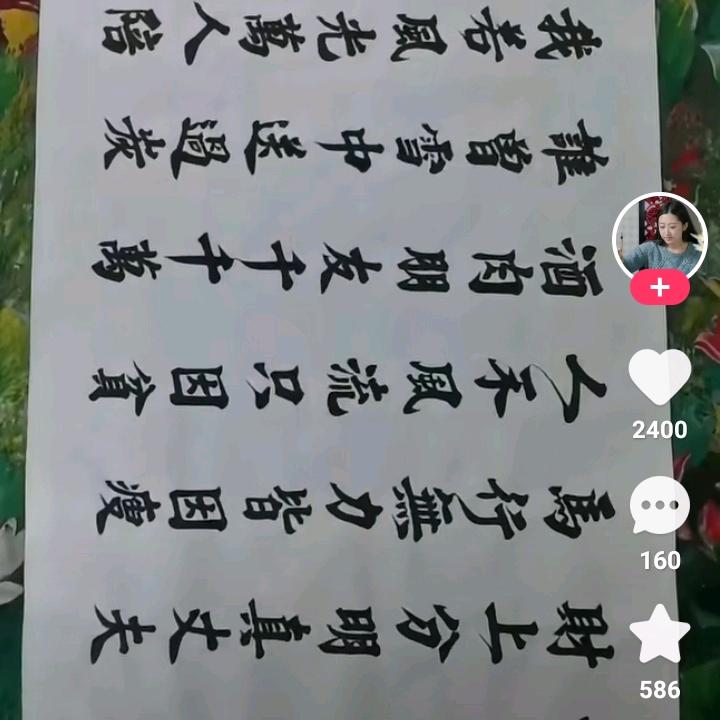 財上分明真丈夫
馬行無力皆因瘦
人不風流只因貧
酒肉朋友千千萬
誰曾雪中送過炭
我若風光萬人陪
2400
160
586